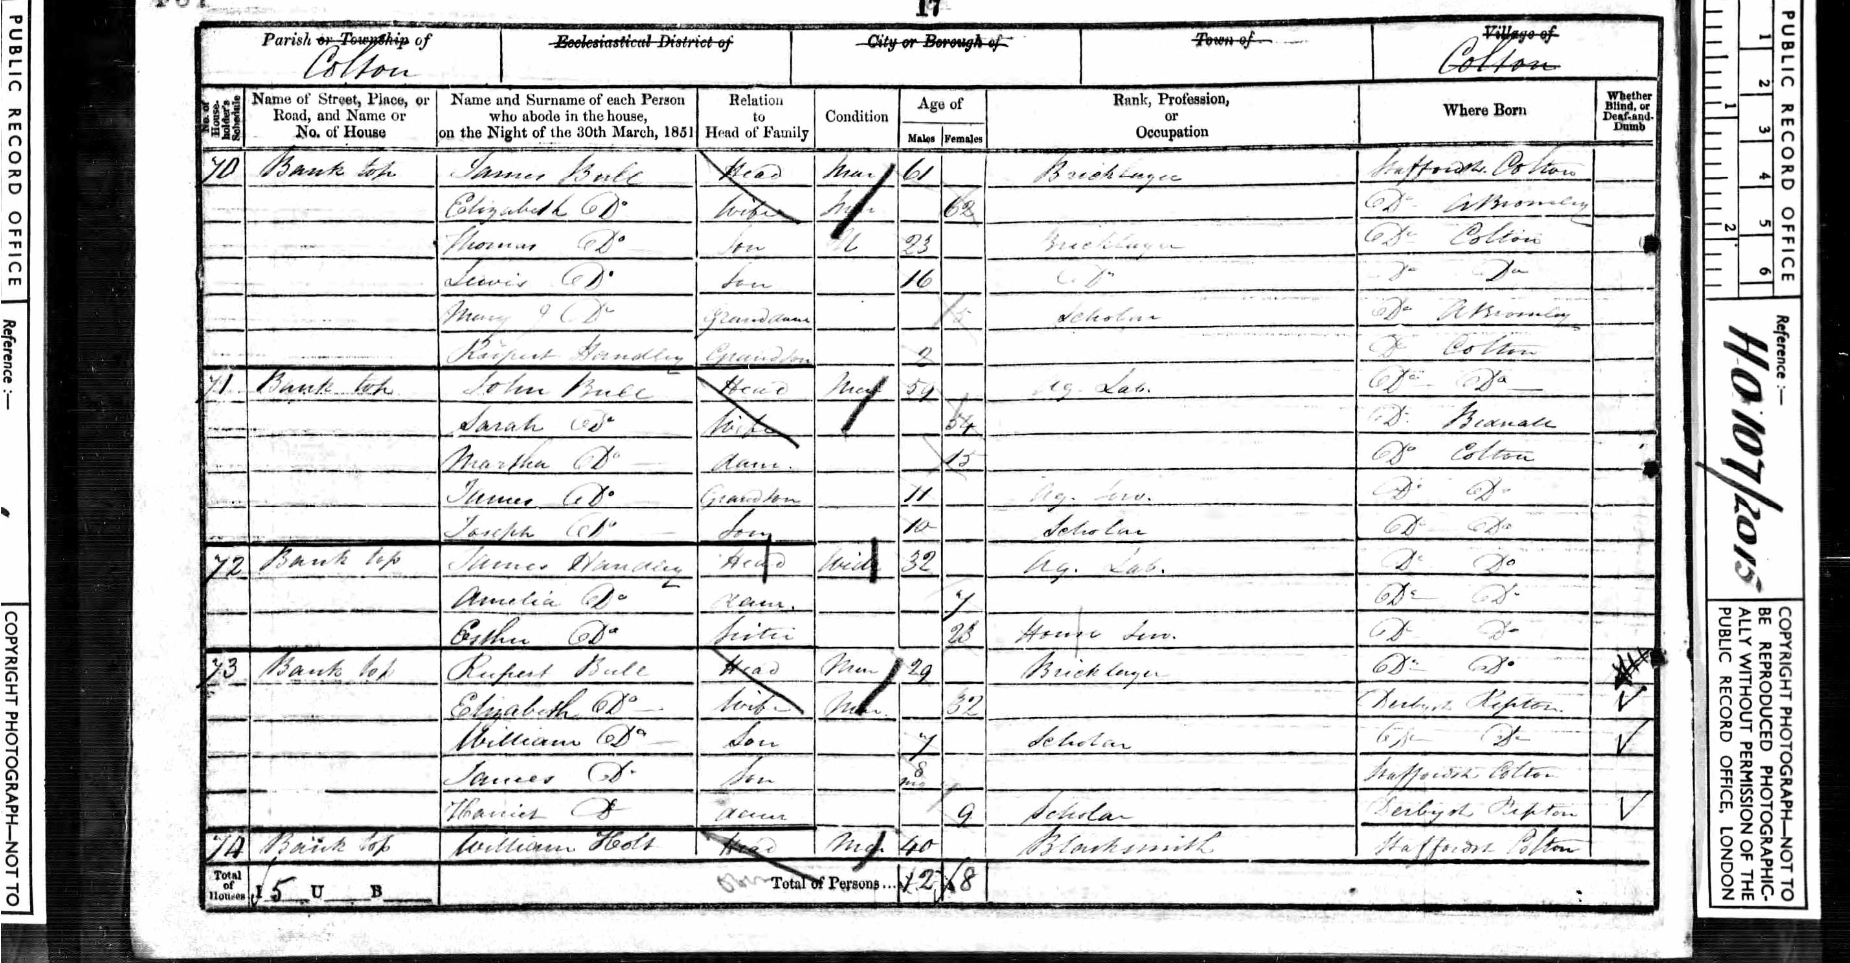 17
Parish or Township of Ecclesiastical District of City or Borough of Town of Village of
Colton Colton
No. of House-holder's Schedule Name of Street, Place, or Road, and Name or No. of House Name and Surname of each Person who abode in the house, on the Night of the 30th March, 1851 Relation to Head of Family Condition Age of Males Females Rank, Profession, or Occupation Where Born Whether Blind, or Deaf-and-Dumb
70 Bank top James Bull Head Mar 61 Bricklayer Staffords. Colton
Elizabeth Do Wife Mar 62 Do ABromley
Thomas Do Son U 23 Bricklayer Do Colton
Lewis Do Son 16 Do Do Do
Mary J Do Granddaur 5 Scholar Do ABromley
Rupert Handley Grandson 2 Do Colton
71 Bank top John Bull Head Mar 59 Ag. Lab. Do Do
Sarah Do Wife 54 Do Bednall
Martha Do daur. 15 Do Colton
James Do Grandson 11 Ag. Serv. Do Do
Joseph Do Son 10 Scholar Do Do
72 Bank top James Handley Head Wid 32 Ag. Lab. Do Do
Amelia Do daur. 7 Do Do
Esther Do Sister 23 House Serv. Do Do
73 Bank top Rupert Bull Head Mar 29 Bricklayer Do Do
Elizabeth Do Wife Mar. 32 Derbysh Repton
William Do Son 7 Scholar Do Do
James Do Son 8 mo Staffordsh Colton
Harriet Do daur 9 Scholar Derbysh Repton
74 Bank top William Holt Head Mar 40 Blacksmith Staffordsh Colton
Total of Houses I 5 U B Total of Persons... 12 8
PUBLIC RECORD OFFICE
Reference :—
COPYRIGHT PHOTOGRAPH—NOT TO
1 2 3 4 5 6
1 2
PUBLIC RECORD OFFICE
Reference :—
HO 107/2015
COPYRIGHT PHOTOGRAPH—NOT TO
BE REPRODUCED PHOTOGRAPHIC-
ALLY WITHOUT PERMISSION OF THE
PUBLIC RECORD OFFICE, LONDON